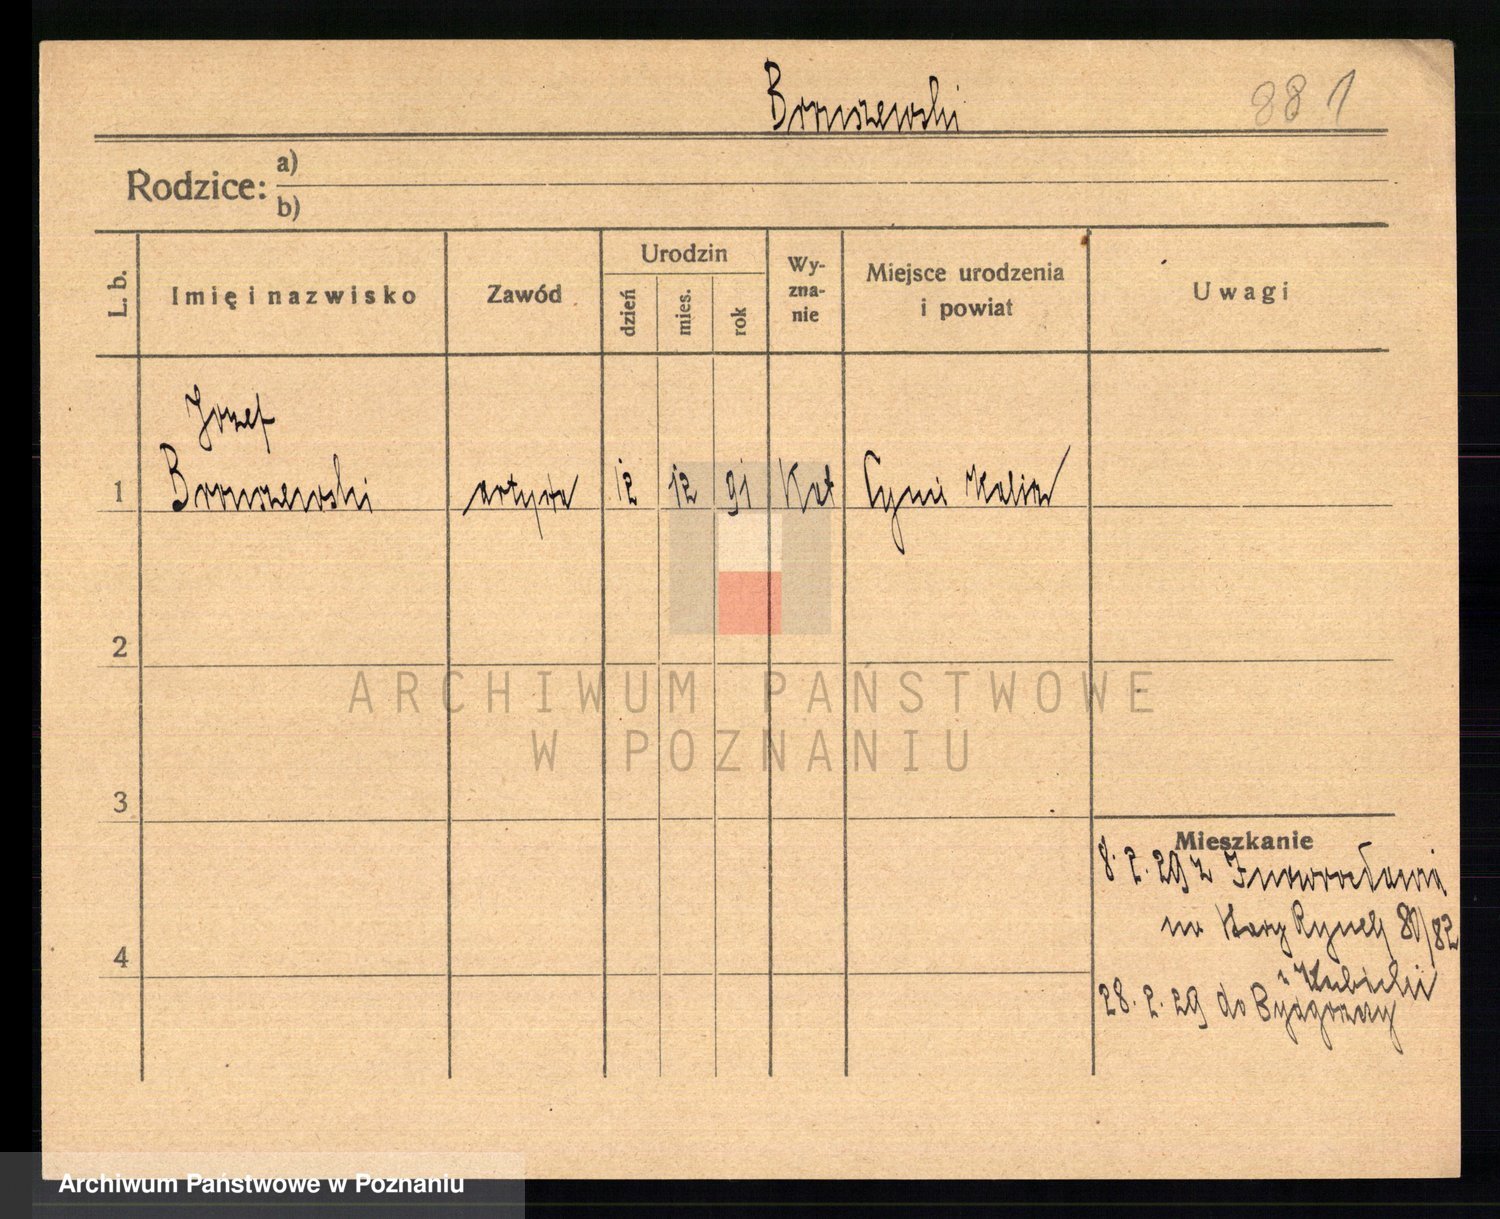 Bronszewski
881
Rodzice:
a)
b)
L. b.
Imię i nazwisko
Zawód
Urodzin
dzień
mies.
rok
Wy-
zna-
nie
Miejsce urodzenia
i powiat
Uwagi
Jozef
1 Bronszewski artysta 12 12 91 Kat Kalisz
2
3
4
Mieszkanie
8. 2. 29 z Inowrocławia
na Stary Rynek 80/82
28. 2. 29 do Bydgoszczy
ARCHIWUM PAŃSTWOWE
W POZNANIU
Archiwum Państwowe w Poznaniu